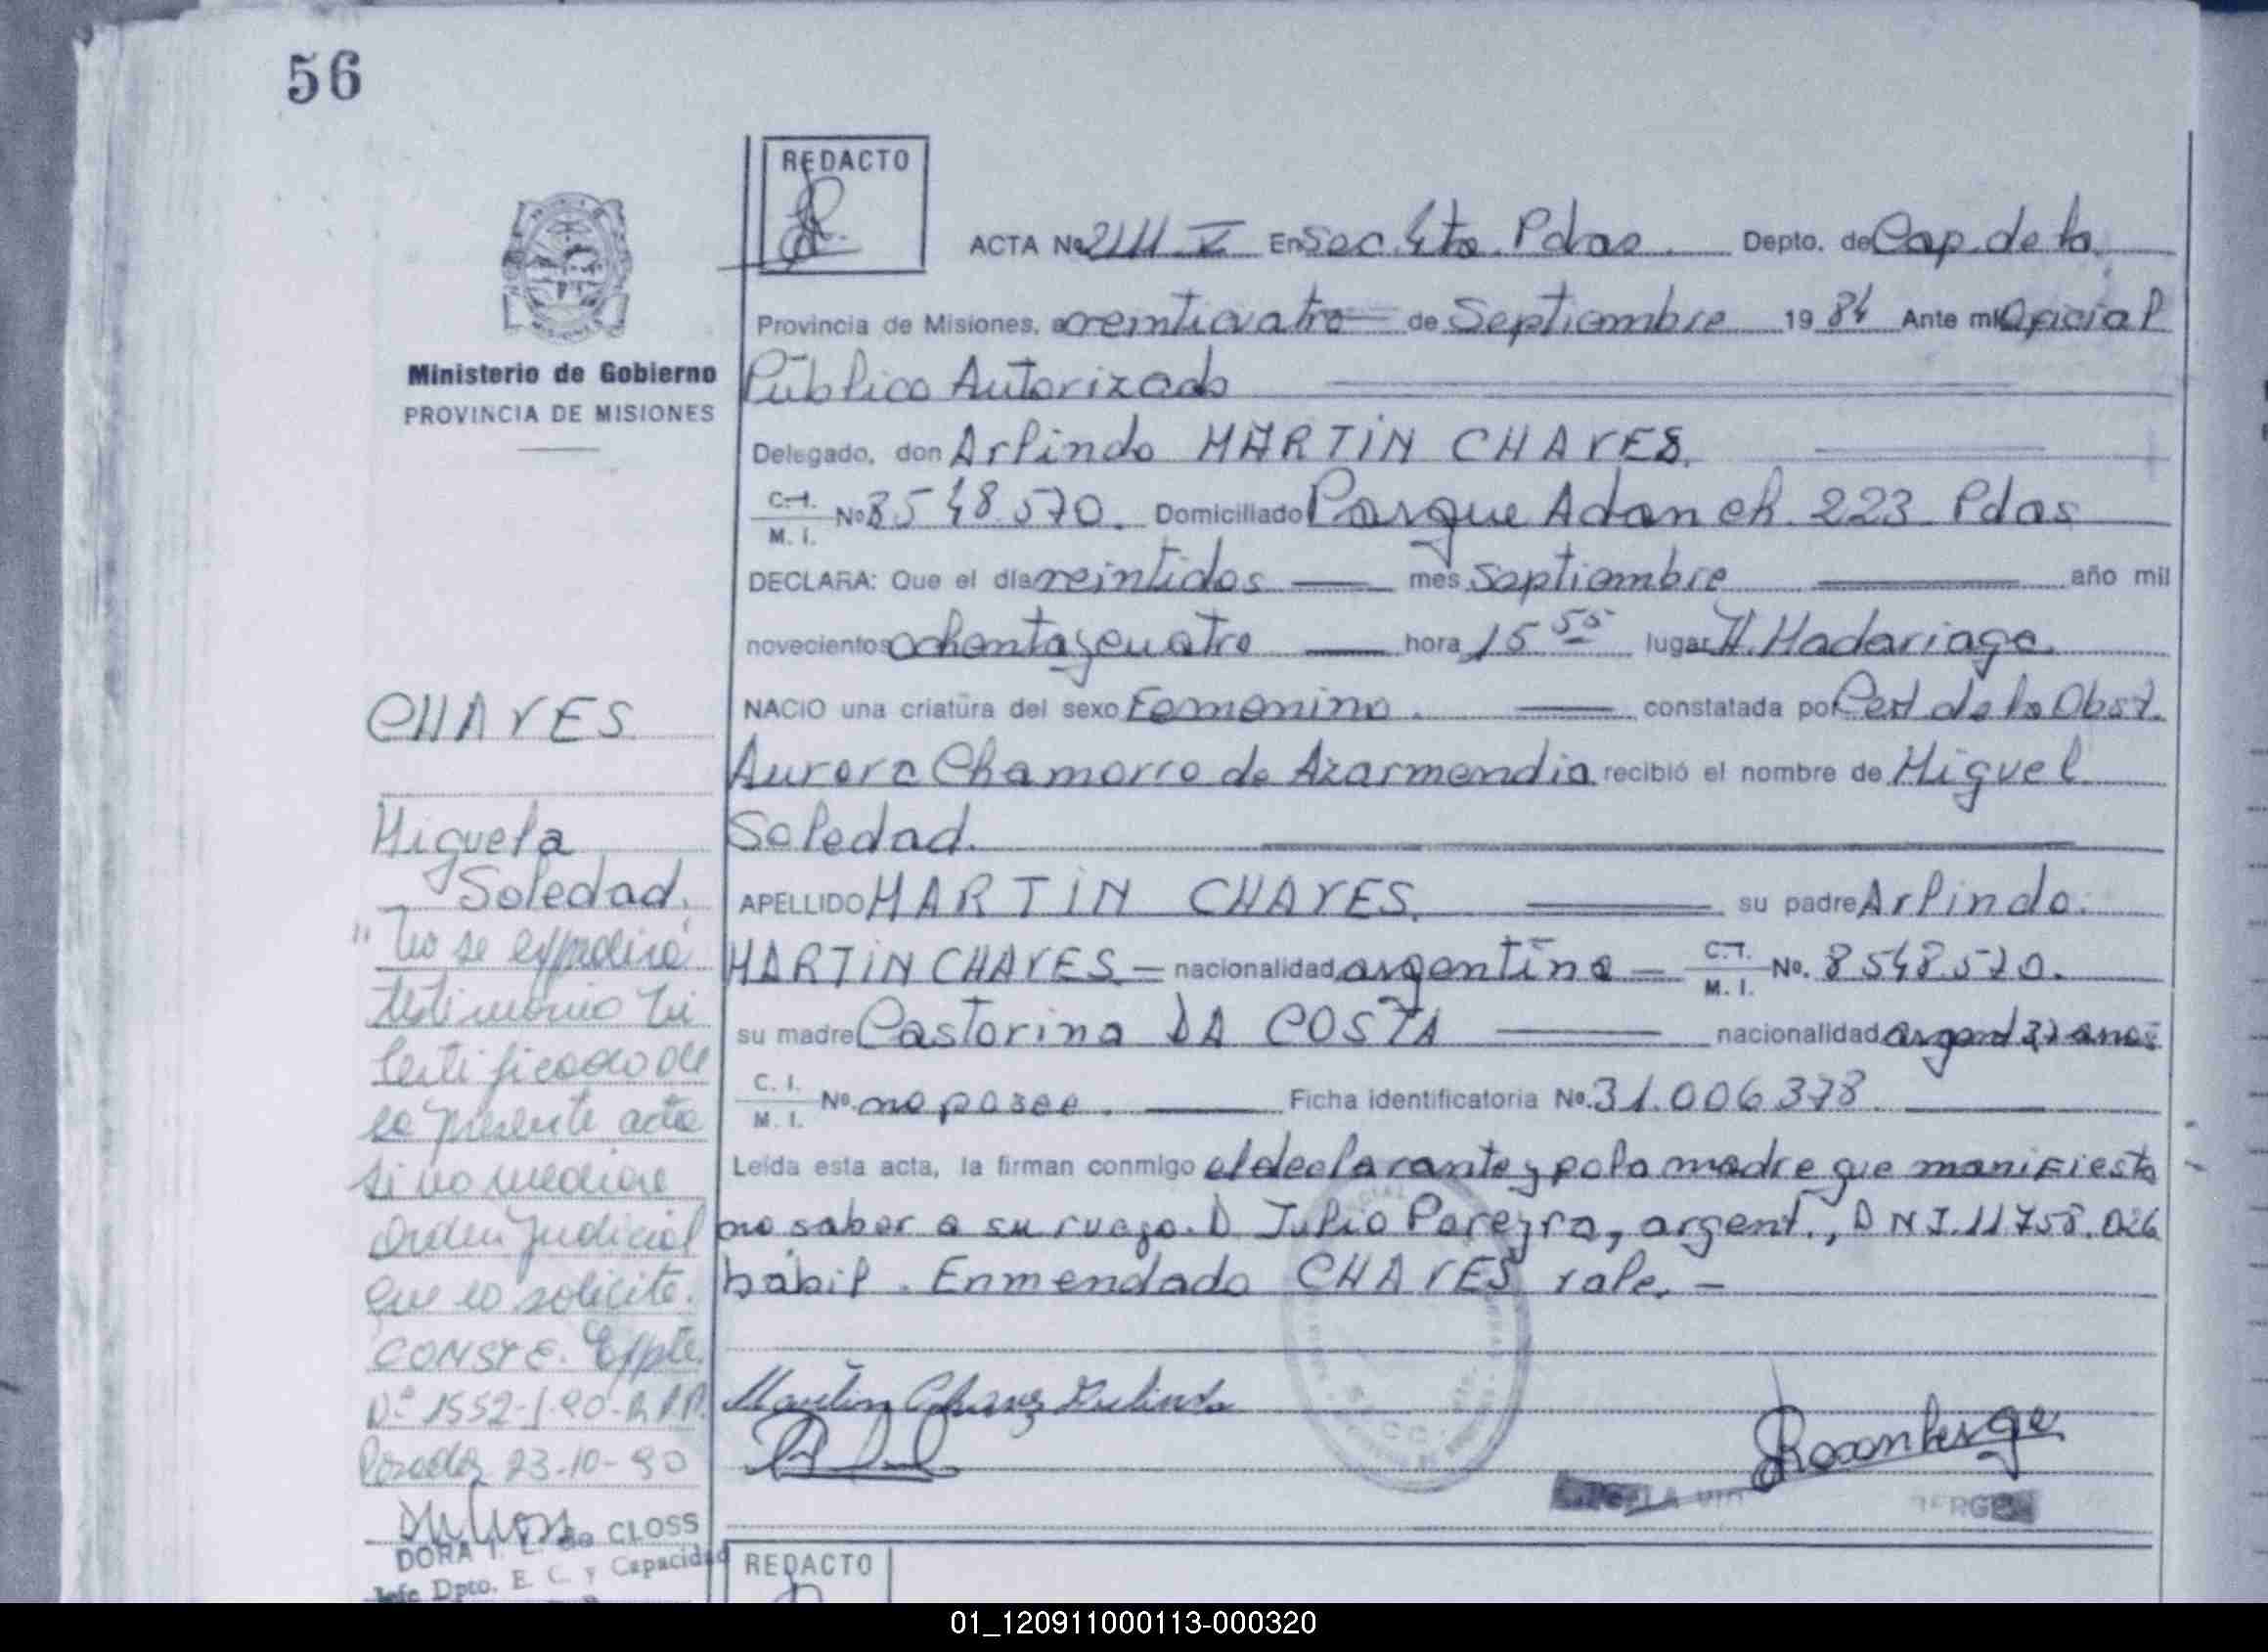 56
REDACTO
ACTA No 2111 V En Sec. 4ta. Pdas. Depto. de Cap. de la
Provincia de Misiones, a veinticuatro de Septiembre 19 84 Ante mi Oficial
Público Autorizado
Ministerio de Gobierno
PROVINCIA DE MISIONES
Delegado, don Arlindo MARTIN CHAVES.
C.I. M. I. No 8548.570. Domiciliado Parque Adan ch. 223 Pdas
DECLARA: Que el día veintidos mes Septiembre año mil
novecientos ochenta y cuatro hora 15 55 lugar H. Madariaga.
NACIO una criatura del sexo Femenino. constatada por Cert de la Obst.
Aurora Chamorro de Azarmendia recibió el nombre de Miguel
Soledad.
APELLIDO MARTIN CHAVES. su padre Arlindo.
MARTIN CHAVES - nacionalidad argentina - C.I. M. I. No. 8548.570.
su madre Castorina DA COSTA nacionalidad argent 27 anos
C. I. M. I. No. no posee. Ficha identificatoria No. 31.006.378
Leída esta acta, la firman conmigo el declarante y po la madre que manifiesta
no saber a su ruego. D Julio Pereyra, argent., DNI. 11758.026
habil. Enmendado CHAVES vale. -
Martin Chavez Arlindo
CHAVES
Miguela
Soledad.
"No se expedirá
testimonio ni
certificado de
la presente acta
si no mediare
orden judicial
que lo solicite.
CONSTE. Expte.
Nº 1552-1-90-R.P.P.
Posadas 23-10-90
DORA I. L. de CLOSS
Jefe Dpto. E. C. y Capacidad
REDACTO
01_120911000113-000320